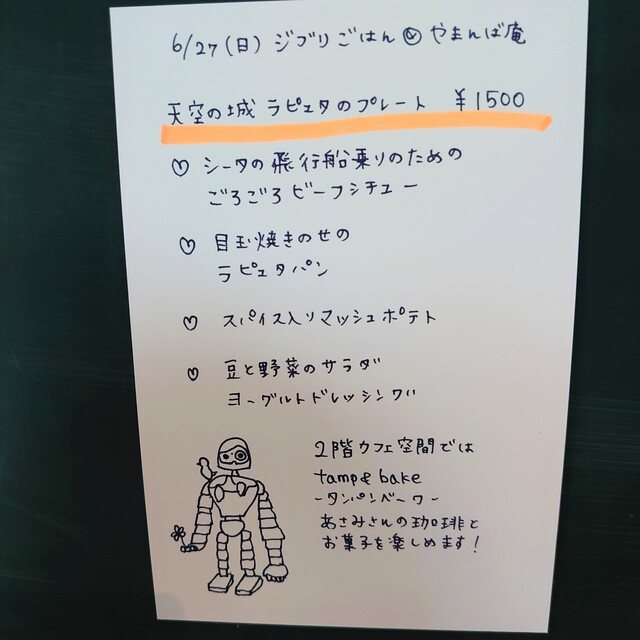 6/27(日) ジブリごはん@やまんば庵
天空の城 ラピュタのプレート ¥1500
♡ シータの飛行船乗りのための
ごろごろビーフシチュー
♡ 目玉焼きのせの
ラピュタパン
♡ スパイス入りマッシュポテト
♡ 豆と野菜のサラダ
ヨーグルトドレッシング
2階カフェ空間では
tamp& bake
-タンパンベーク-
あさみさんの珈琲と
お菓子を楽しめます!